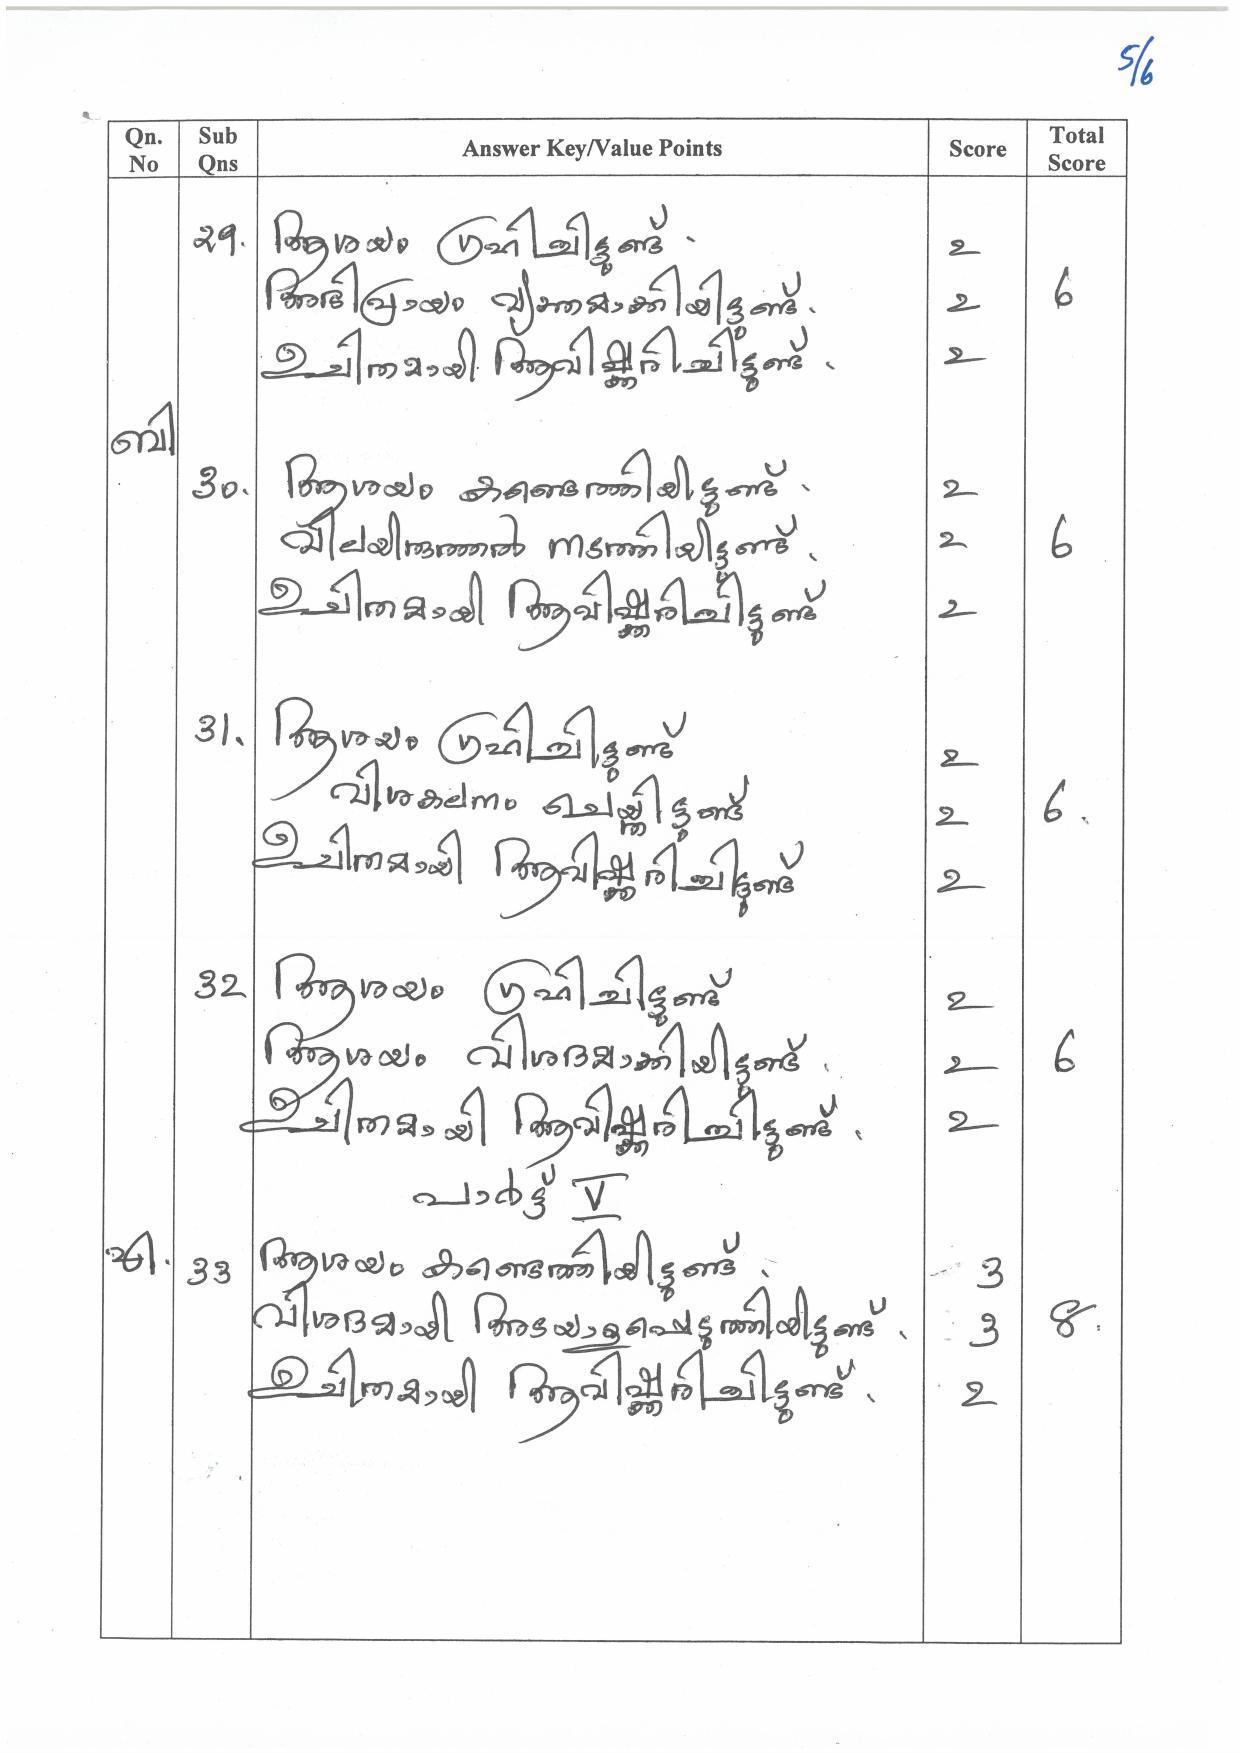 5/6
Qn. No Sub Qns Answer Key/Value Points Score Total Score
29. ആശയം ഗ്രഹിച്ചിട്ടുണ്ട്. 2
അഭിപ്രായം വ്യക്തമാക്കിയിട്ടുണ്ട്. 2 6
ഉചിതമായി ആവിഷ്ക്കരിച്ചിട്ടുണ്ട്. 2
ബി
30. ആശയം കണ്ടെത്തിയിട്ടുണ്ട്. 2
വിലയിരുത്തൽ നടത്തിയിട്ടുണ്ട്. 2 6
ഉചിതമായി ആവിഷ്ക്കരിച്ചിട്ടുണ്ട് 2
31. ആശയം ഗ്രഹിച്ചിട്ടുണ്ട് 2
വിശകലനം ചെയ്തിട്ടുണ്ട് 2 6.
ഉചിതമായി ആവിഷ്ക്കരിച്ചിട്ടുണ്ട് 2
32 ആശയം ഗ്രഹിച്ചിട്ടുണ്ട് 2
ആശയം വിശദമാക്കിയിട്ടുണ്ട്. 2 6
ഉചിതമായി ആവിഷ്ക്കരിച്ചിട്ടുണ്ട്. 2
പാർട്ട് V
33 ആശയം കണ്ടെത്തിയിട്ടുണ്ട്. 3
വിശദമായി അടയാളപ്പെടുത്തിയിട്ടുണ്ട്. 3 8.
ഉചിതമായി ആവിഷ്ക്കരിച്ചിട്ടുണ്ട്. 2